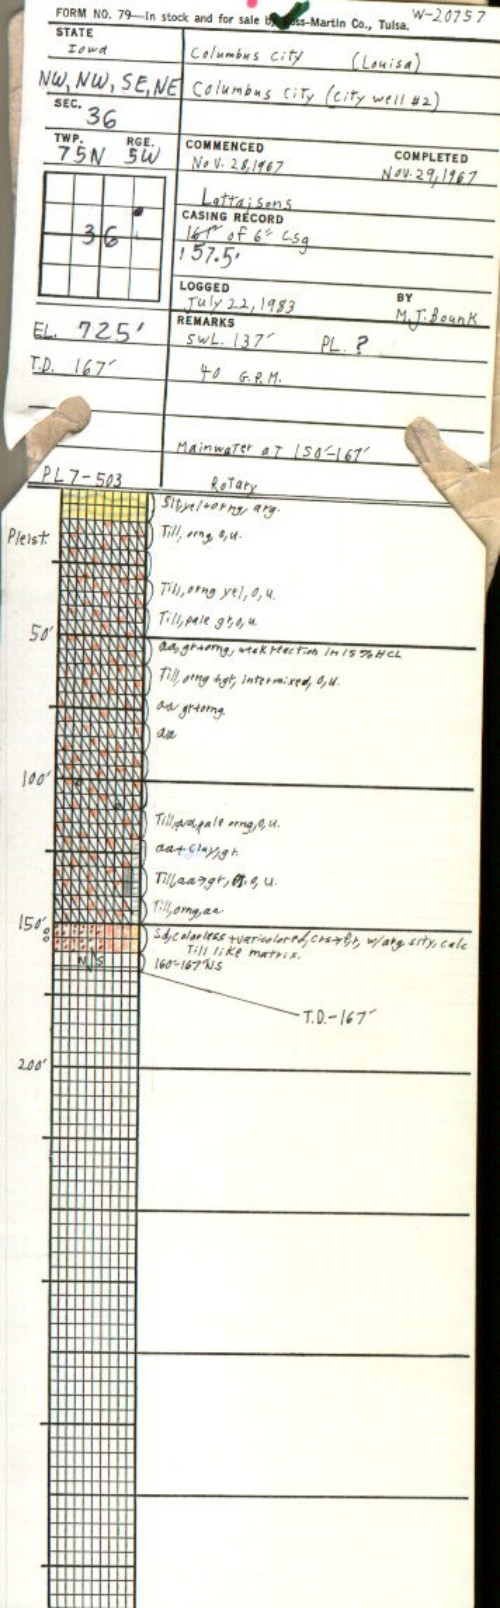 FORM NO. 79—In stock and for sale by Ross-Martin Co., Tulsa.
W-20757
STATE
Iowa
Columbus City (Louisa)
NW, NW, SE, NE
Columbus City (City well #2)
SEC.
36
TWP. RGE.
75N 5W
COMMENCED COMPLETED
Nov. 28, 1967 Nov. 29, 1967
CASING RECORD
of 6" Csg
157.5'
36
LOGGED BY
July 22, 1983 M.J. Bounk
EL. 725'
REMARKS
SWL. 137' PL. ?
T.D. 167'
40 G.P.M.
Mainwater at 150'-167'
PL7-503
Rotary
Slt, yel+orng, arg.
Pleist.
Till, orng, o, u.
Till, orng yel, o, u.
Till, pale gr, o, u.
50'
aa, gr+orng, weak reaction in 15% HCL
Till, orng+gr, intermixed, o, u.
aa gr+orng.
aa
100'
Till, aa, pale orng, o, u.
aa+Clay, gr.
Till, aa→gr, o, u.
Till, orng, aa.
150'
Sd, colorless+varicolored, crs→fr, w/arg slty, calc
Till like matrix.
NS
160'-167' NS
T.D.-167'
200'